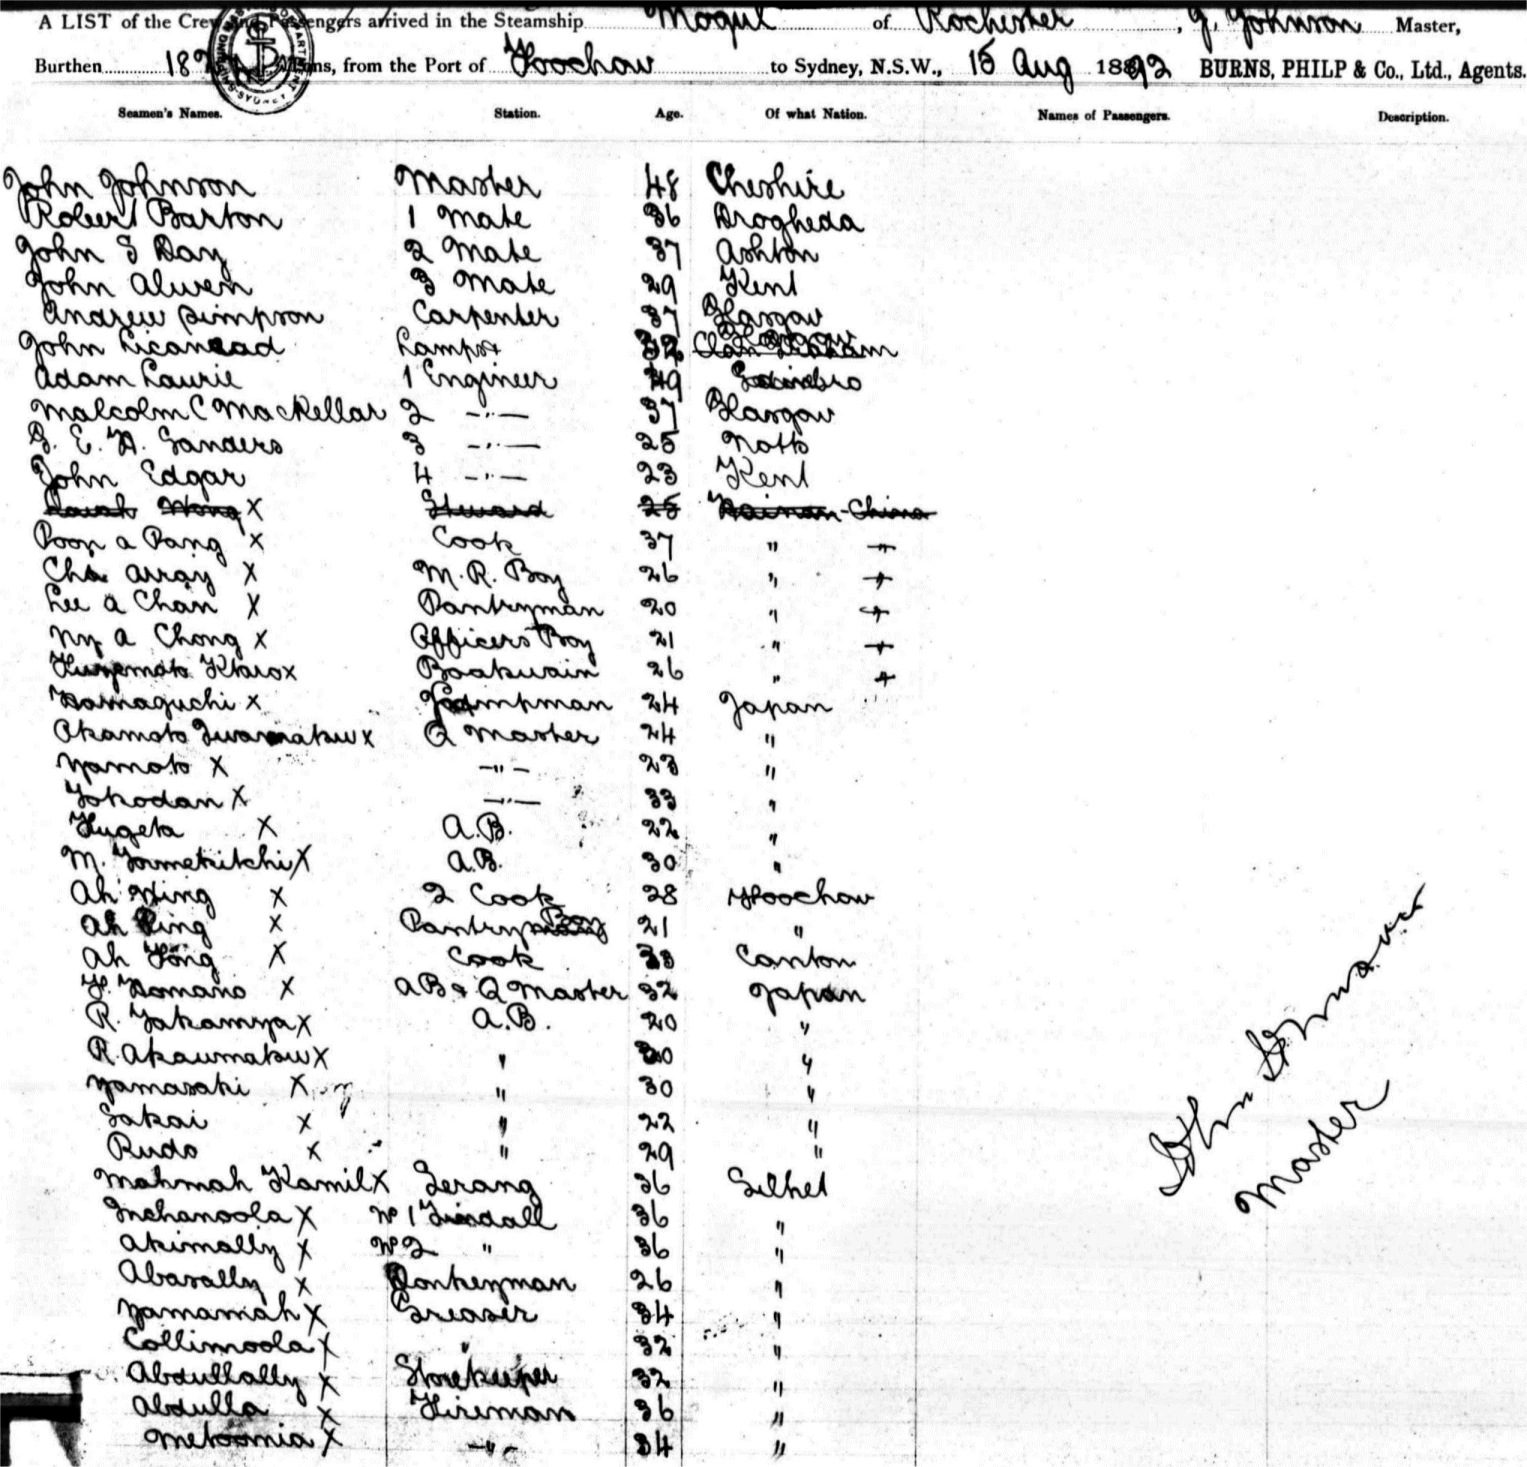 A LIST of the Crew and Passengers arrived in the Steamship Mogul of Rochester, J. Johnson Master,
Burthen 182 Tons, from the Port of Foochow to Sydney, N.S.W., 15 Aug 1892 BURNS, PHILP & Co., Ltd., Agents.
Seamen's Names. Station. Age. Of what Nation. Names of Passengers. Description.
John Johnson Master 48 Cheshire
Robert Barton 1 Mate 36 Drogheda
John S Day 2 Mate 37 Ashton
John Alwen 3 Mate 29 Kent
Andrew Simpson Carpenter 37 Glasgow
John Lamps 32 Glasgow
Adam Laurie 1 Engineer 49 Edinbro
Malcolm C MacKellar 2 -"- 37 Glasgow
G. E. H. Sanders 3 -"- 25 Notts
John Edgar 4 -"- 23 Kent
Wong X Steward 25 Hainan China
Poon a Pang X Cook 37 " "
Cha Array X M. R. Boy 26 " "
Lee a Chan X Pantryman 20 " "
Ny a Chong X Officers Boy 21 " "
Ktaro X Boatswain 26 " "
Hamaguchi X Lampman 24 Japan
Okamoto Iwamatsu X Q Master 24 "
Yamoto X -"- 23 "
Yokodan X -"- 33 "
Hugeta X A.B. 22 "
M. Tometkitchi X A.B. 30 "
Ah Ning X 2 Cook 28 Foochow
Ah Ping X Pantry Boy 21 "
Ah Fong X Cook 33 Canton
H. Homano X AB & Q Master 32 Japan
R. Takamya X A.B. 20 "
R. Akaumatsu X " 30 "
Yamasaki X " 30 "
Sakai X " 22 "
Rudo X " 29 "
Mahmah Kamil X Serang 36 Silhet
Inchanoola X No 1 Tindall 36 "
Akimally X No 2 " 36 "
Abasally X Donkeyman 26 "
Yamamah X Greaser 34 "
Collimoola X " 32 "
Abdullally X Storekeeper 32 "
Abdulla X Fireman 36 "
Metoomia X -"- 34 "
John Johnson
Master